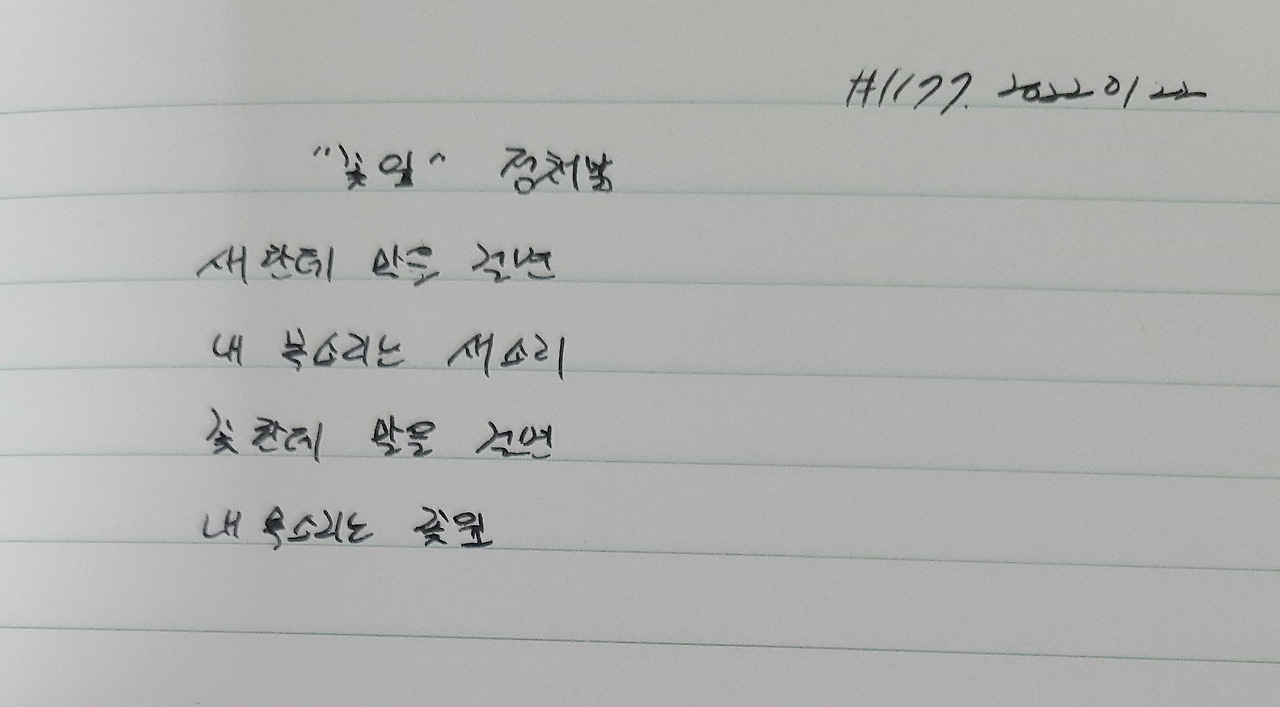 #1177. 2022 01 22
"꽃잎"
새한테 말을 걸면
내 목소리는 새소리
꽃한테 말을 걸면
내 목소리는 꽃잎